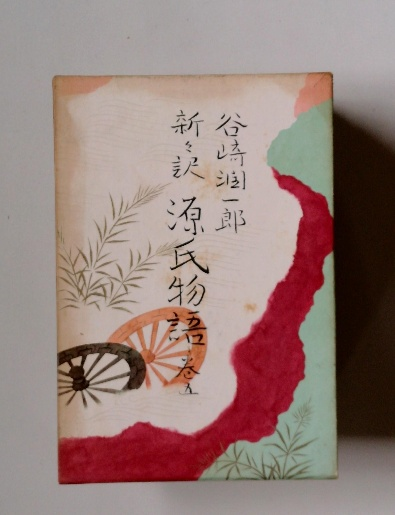 谷崎潤一郎
新々訳 源氏物語 巻五